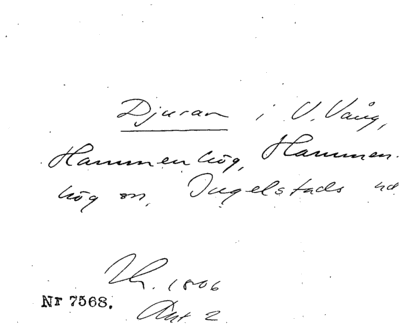 Djuran i V. Vång,
Hammenhög, Hammen-
hög sn, Ingelstads hd
1806
Nr 7568. Akt 2